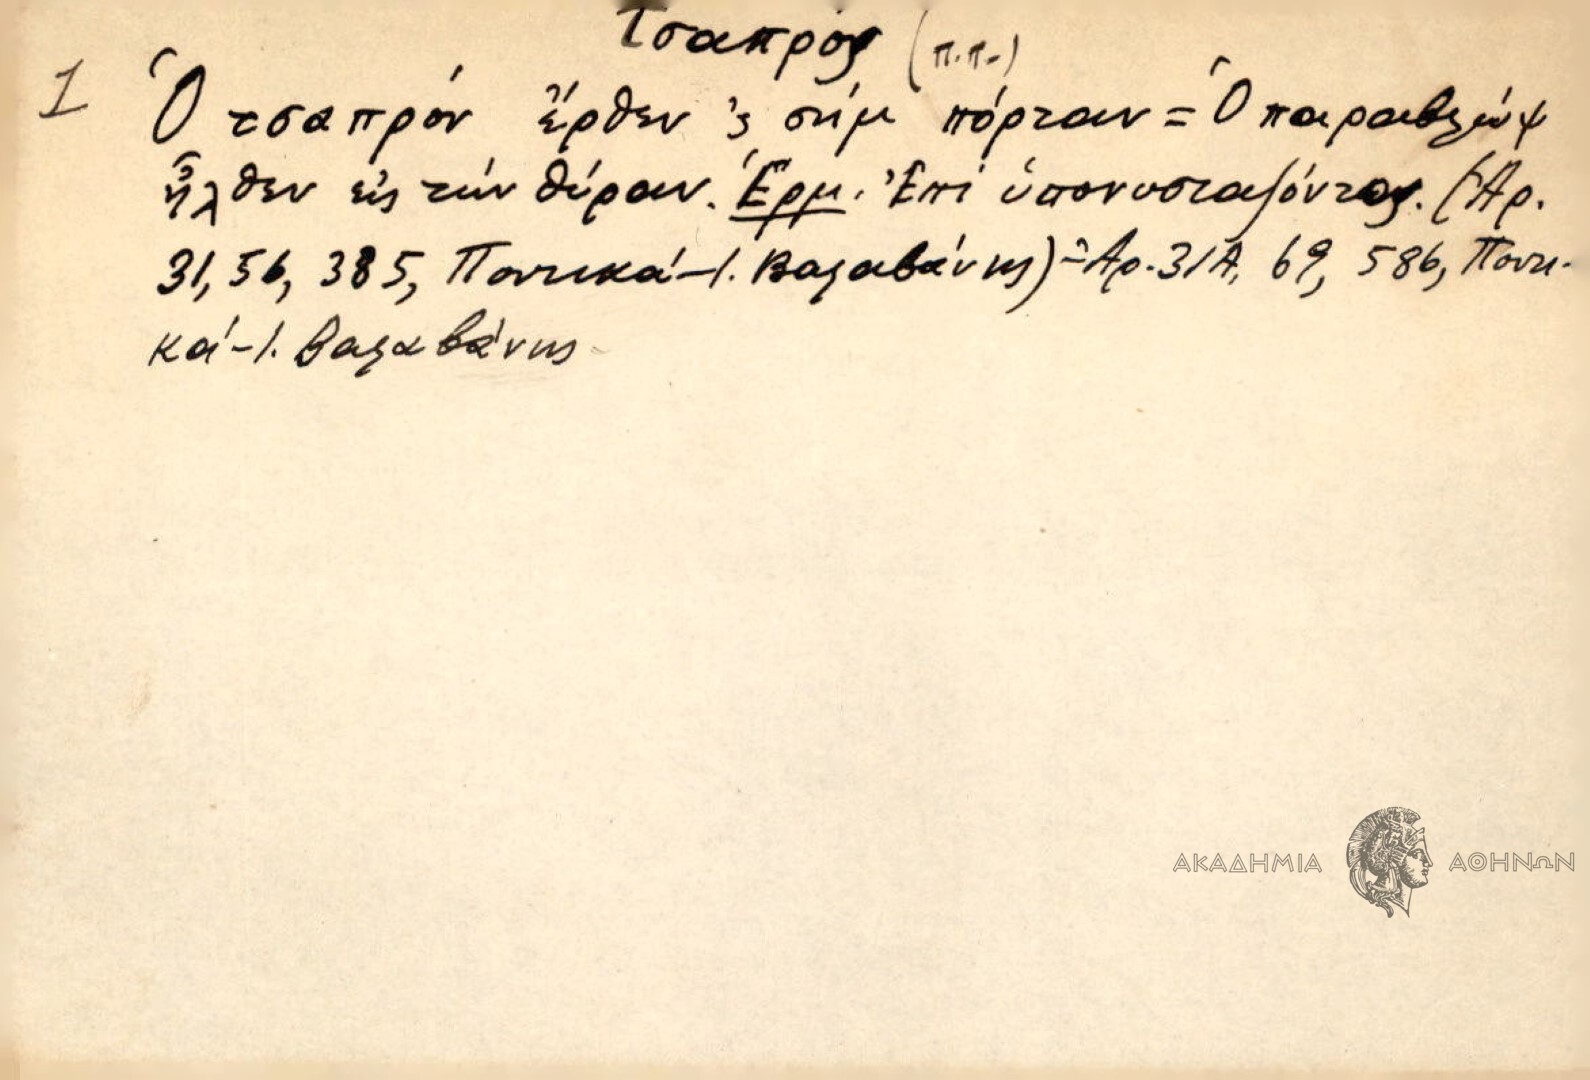 Τσαπρός (π.π.)
1 Ὁ τσαπρόν ἔρθεν 'ς σήμ πόρταν = Ὁ παραβλώψ
ἦλθεν εἰς τήν θύραν. Ἑρμ. Ἐπί ὑπονυστάζοντος. (Ἀρ.
31, 56, 385, Ποντικά - Ι. Βαλαβάνης) = Ἀρ. 31Α, 69, 586, Ποντι-
κά - Ι. Βαλαβάνης
ΑΚΑΔΗΜΙΑ ΑΘΗΝΩΝ